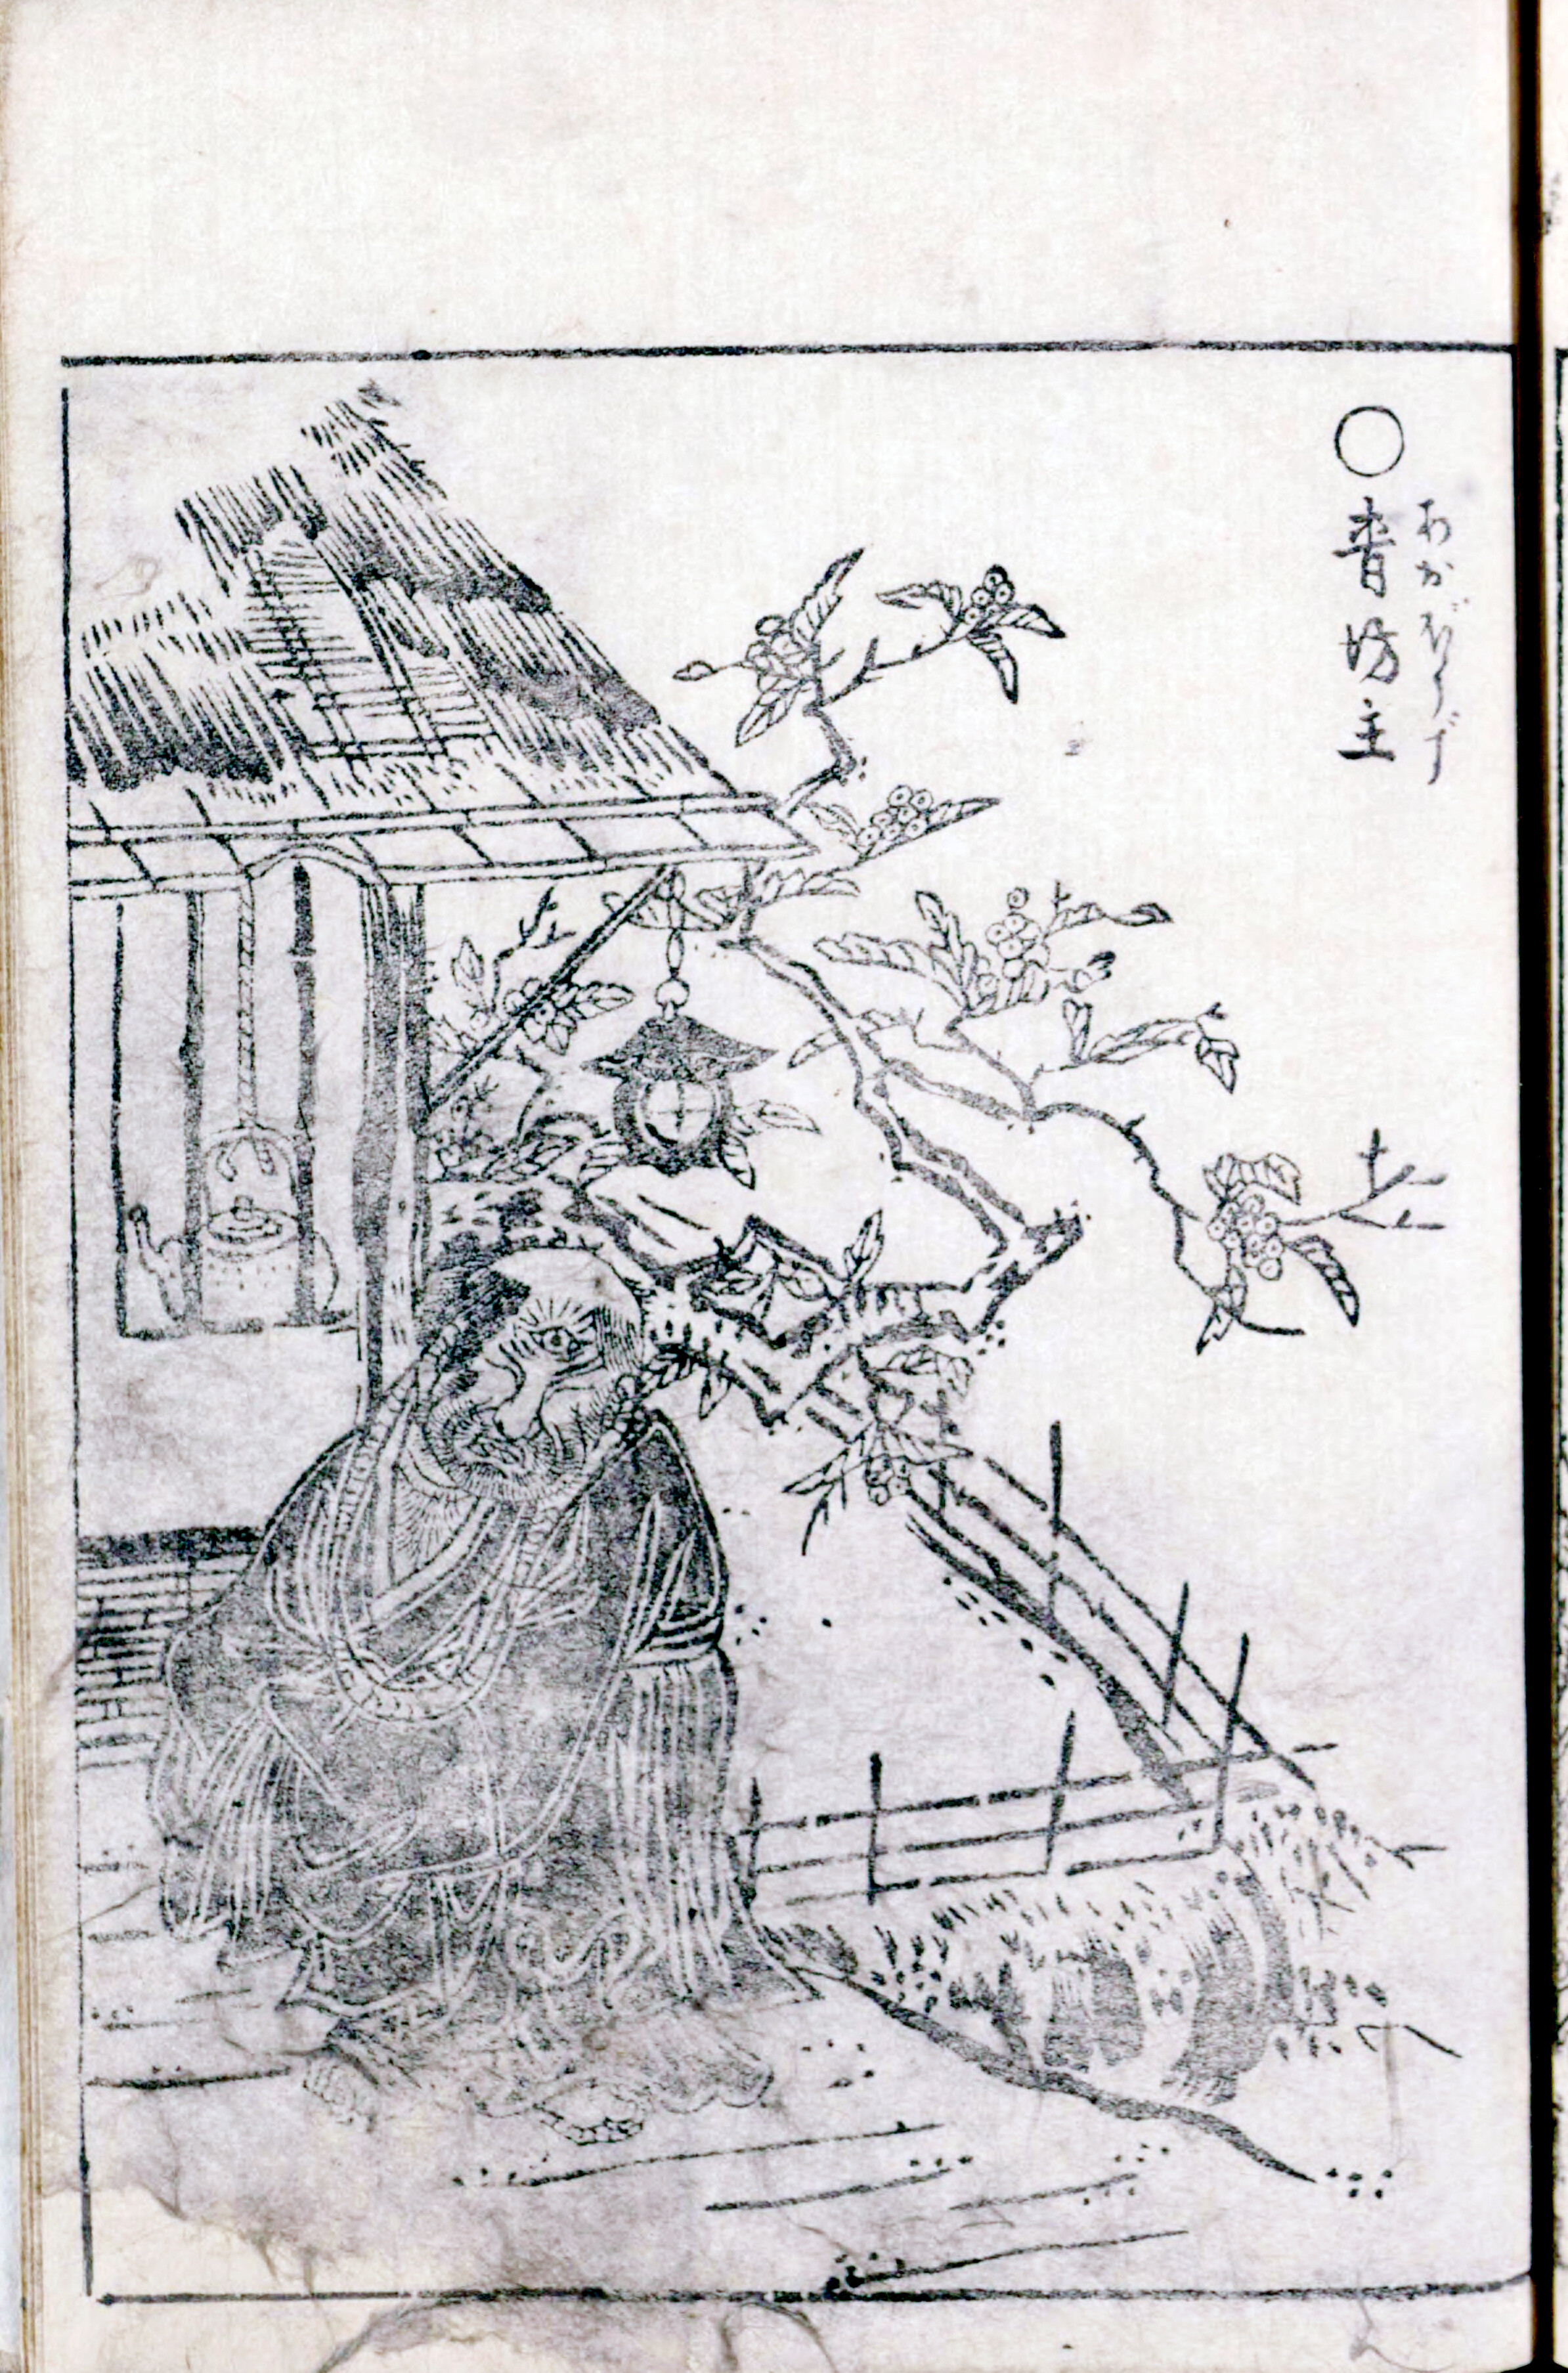 ○青坊主
あをばうず